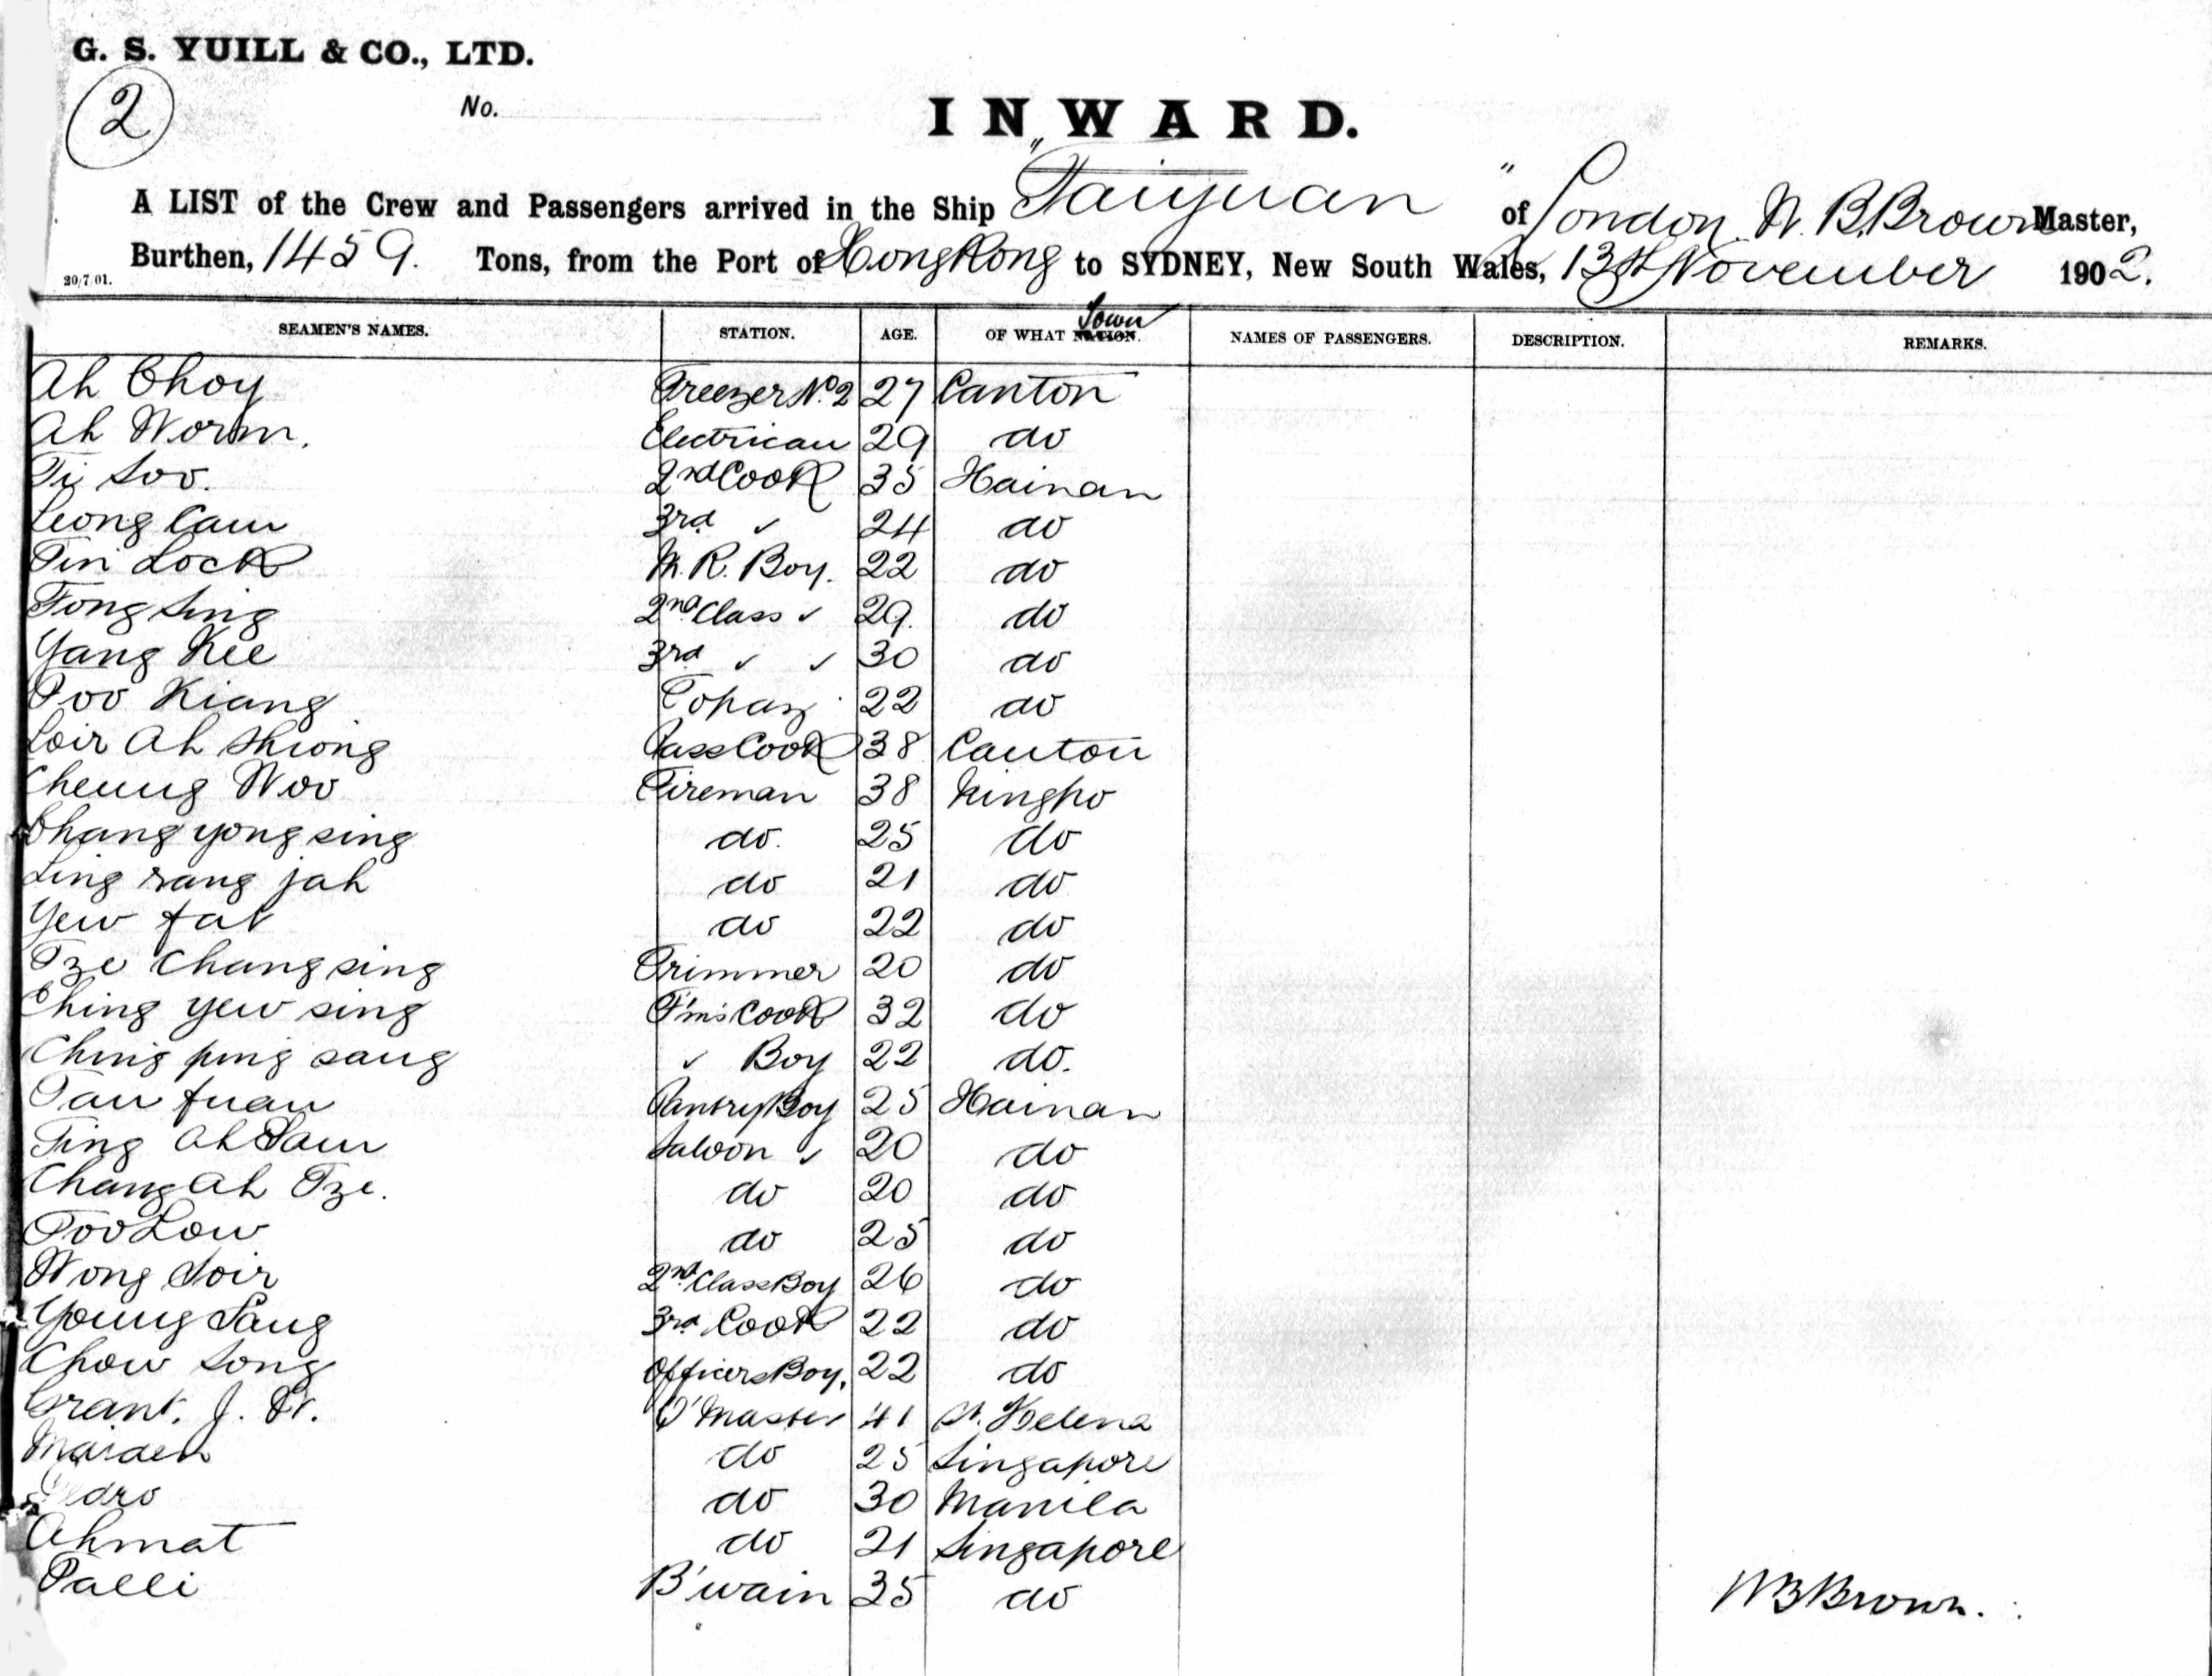 G. S. YUILL & CO., LTD.
2
No.
INWARD.
A LIST of the Crew and Passengers arrived in the Ship "Taiyuan" of London. W. B. Brown Master,
Burthen, 1459. Tons, from the Port of Hong Kong to SYDNEY, New South Wales, 13th November 1902.
20/7/01.
SEAMEN'S NAMES. STATION. AGE. OF WHAT NATION. Town NAMES OF PASSENGERS. DESCRIPTION. REMARKS.
Ah Choy Freezer No. 2 27 Canton
Ah Worm. Electrican 29 do
Ti Soo. 2nd Cook 35 Hainan
Leong Cam 3rd " 24 do
Tin Lock M. R. Boy. 22 do
Fong Sing 2nd Class " 29. do
Yang Kee 3rd " " 30 do
Poo Kiang Topaz 22 do
Loir Ah Shiong Pass Cook 38 Canton
Cheung Woo Fireman 38 Ningpo
Chang yong sing do. 25 do
Ling rang jah do 21 do
Yew fat do 22 do
Tze Chang sing Trimmer 20 do
Ching yew sing F'm's Cook 32 do
Ching ping sang " Boy 22 do.
Tan fuan Pantry Boy 25 Hainan
Ting Ah Sam Saloon " 20 do
Chang Ah Tze. do 20 do
Foo Low do 25 do
Wong Soir 2nd Class Boy 26 do
Young Sang 3rd Cook 22 do
Chow Song Officers Boy. 22 do
Grant. J. W. Q'Master 41 St. Helena
Maiden do 25 Singapore
Pedro do 30 Manila
Ahmat do 21 Singapore
Palli B'wain 35 do
W B Brown.